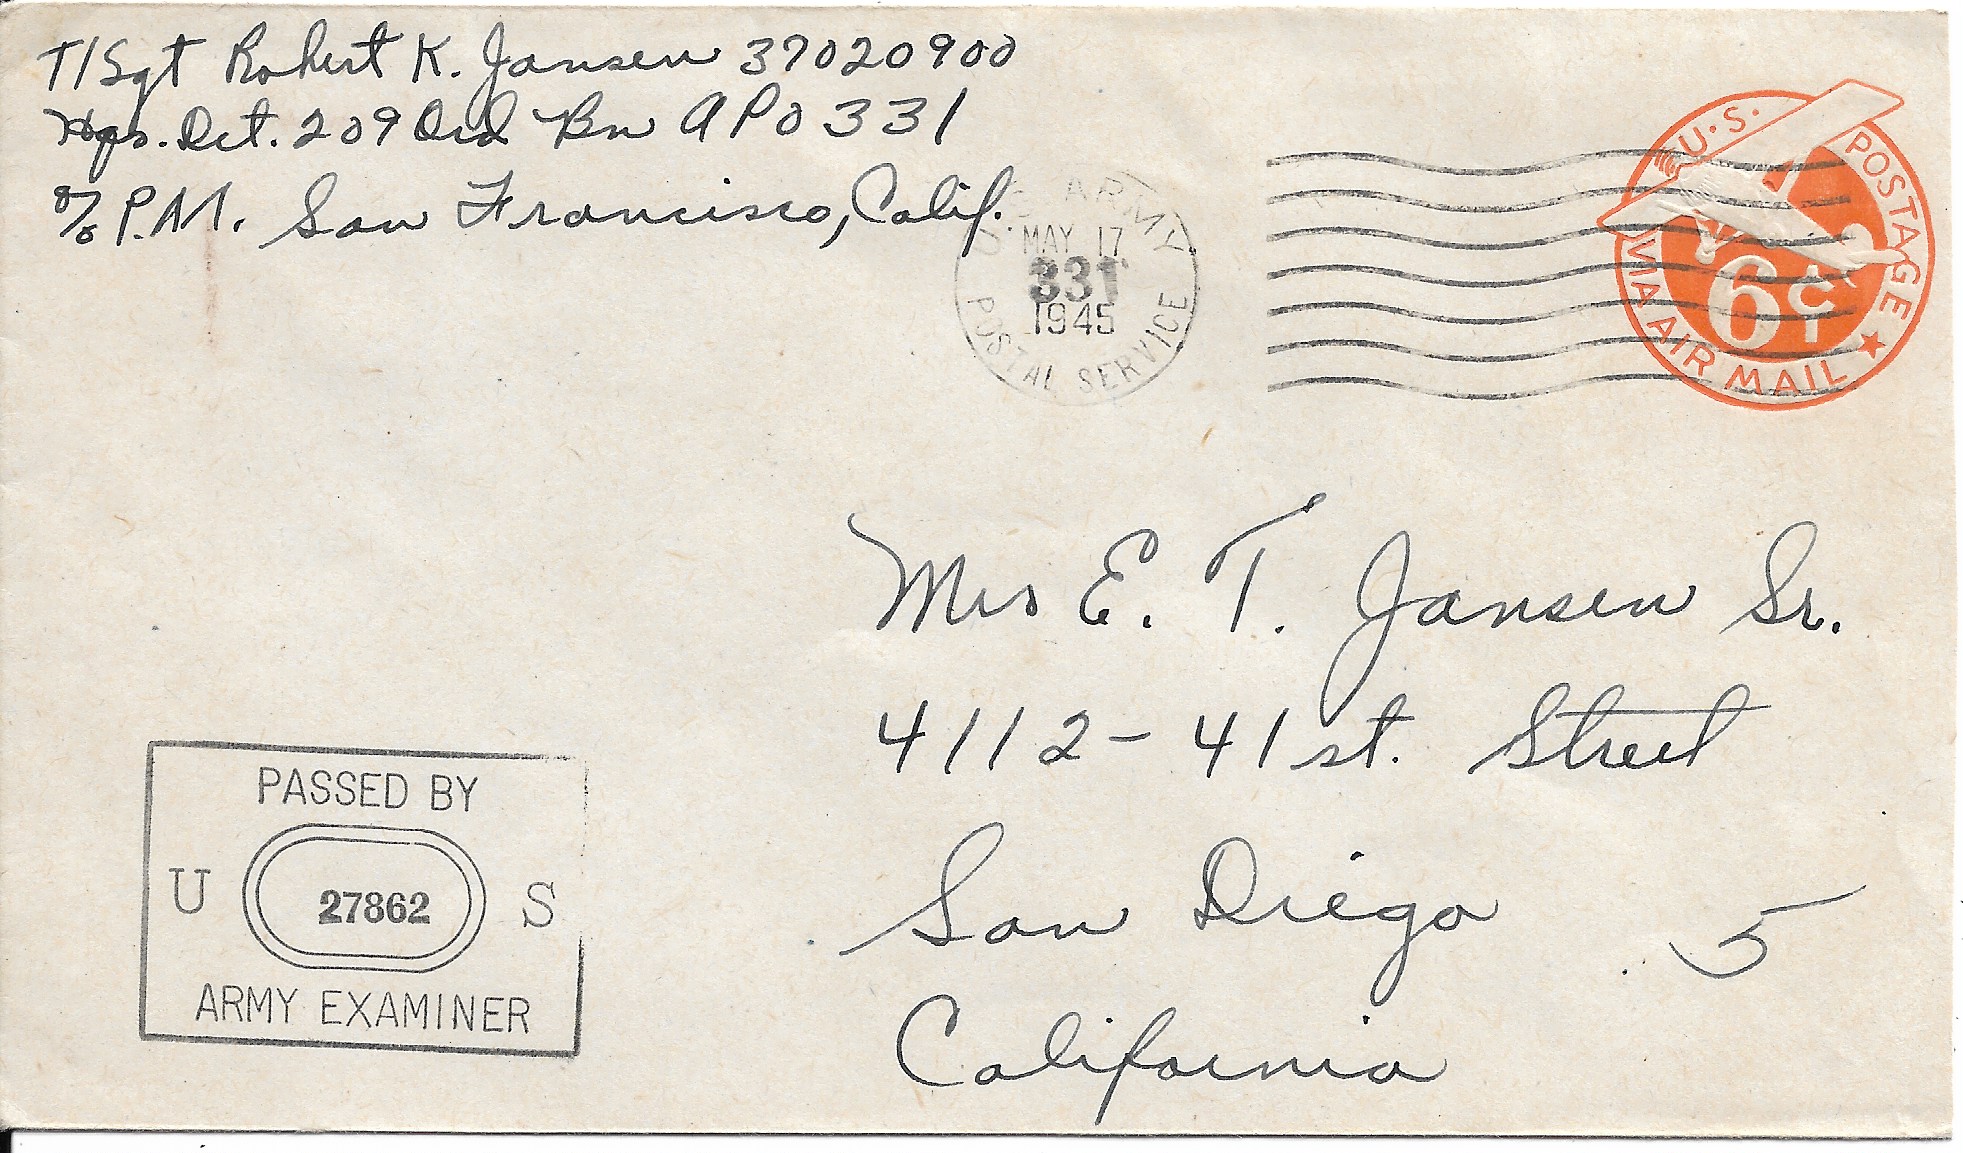 T/Sgt Robert K. Jansen 37020900
Hqs. Det. 209 Ord Bn APO 331
c/o P.M. San Francisco, Calif.
U.S. ARMY
MAY 17
331
1945
POSTAL SERVICE
U.S. POSTAGE
6¢
VIA AIR MAIL
Mrs E. T. Jansen Sr.
4112 - 41st. Street
San Diego 5
California
PASSED BY
U 27862 S
ARMY EXAMINER